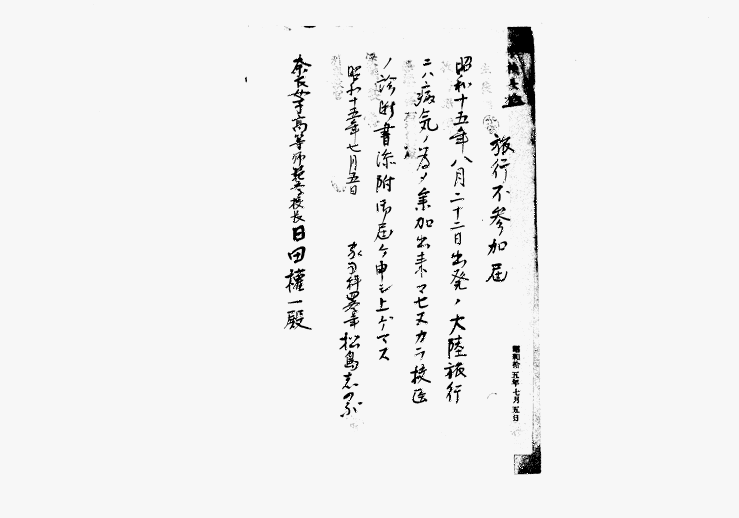 旅行不参加届
昭和十五年八月二十二日出発ノ大陸旅行
ニハ病気ノ為メ参加出来マセヌカラ校医
ノ診断書添附御届ケ申シ上ゲマス
昭和十五年七月五日
松島志のぶ
奈良女子高等師範学校長日田権一殿
昭和拾五年七月五日